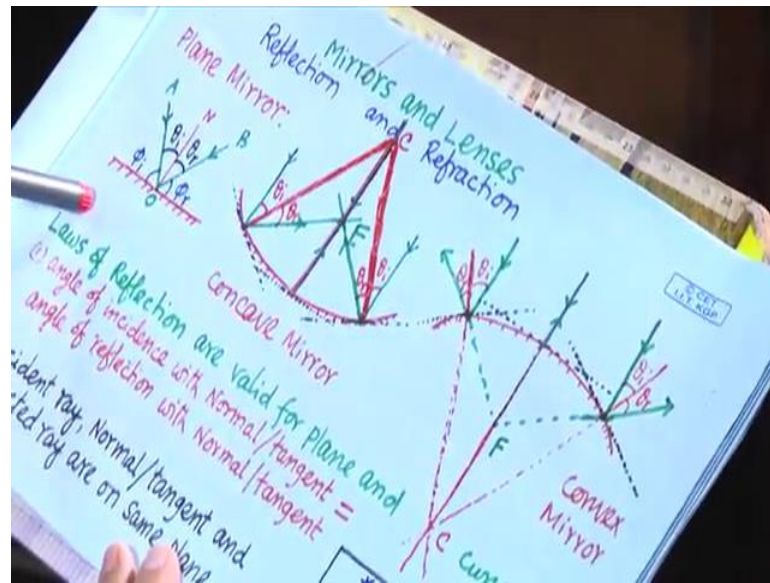 Mirrors and Lenses
Reflection and Refraction
Plane Mirror:
A
N
B
θi
θr
φi
φr
O
C
θi
θr
F
θr
θi
Concave Mirror
θi
© CET
I.I.T. KGP
θi
θr
F
C
Convex
Mirror
Laws of Reflection are valid for Plane and
angle of incidence with Normal/tangent =
angle of reflection with Normal/tangent
ident ray, Normal/tangent and
cted ray are on same plane